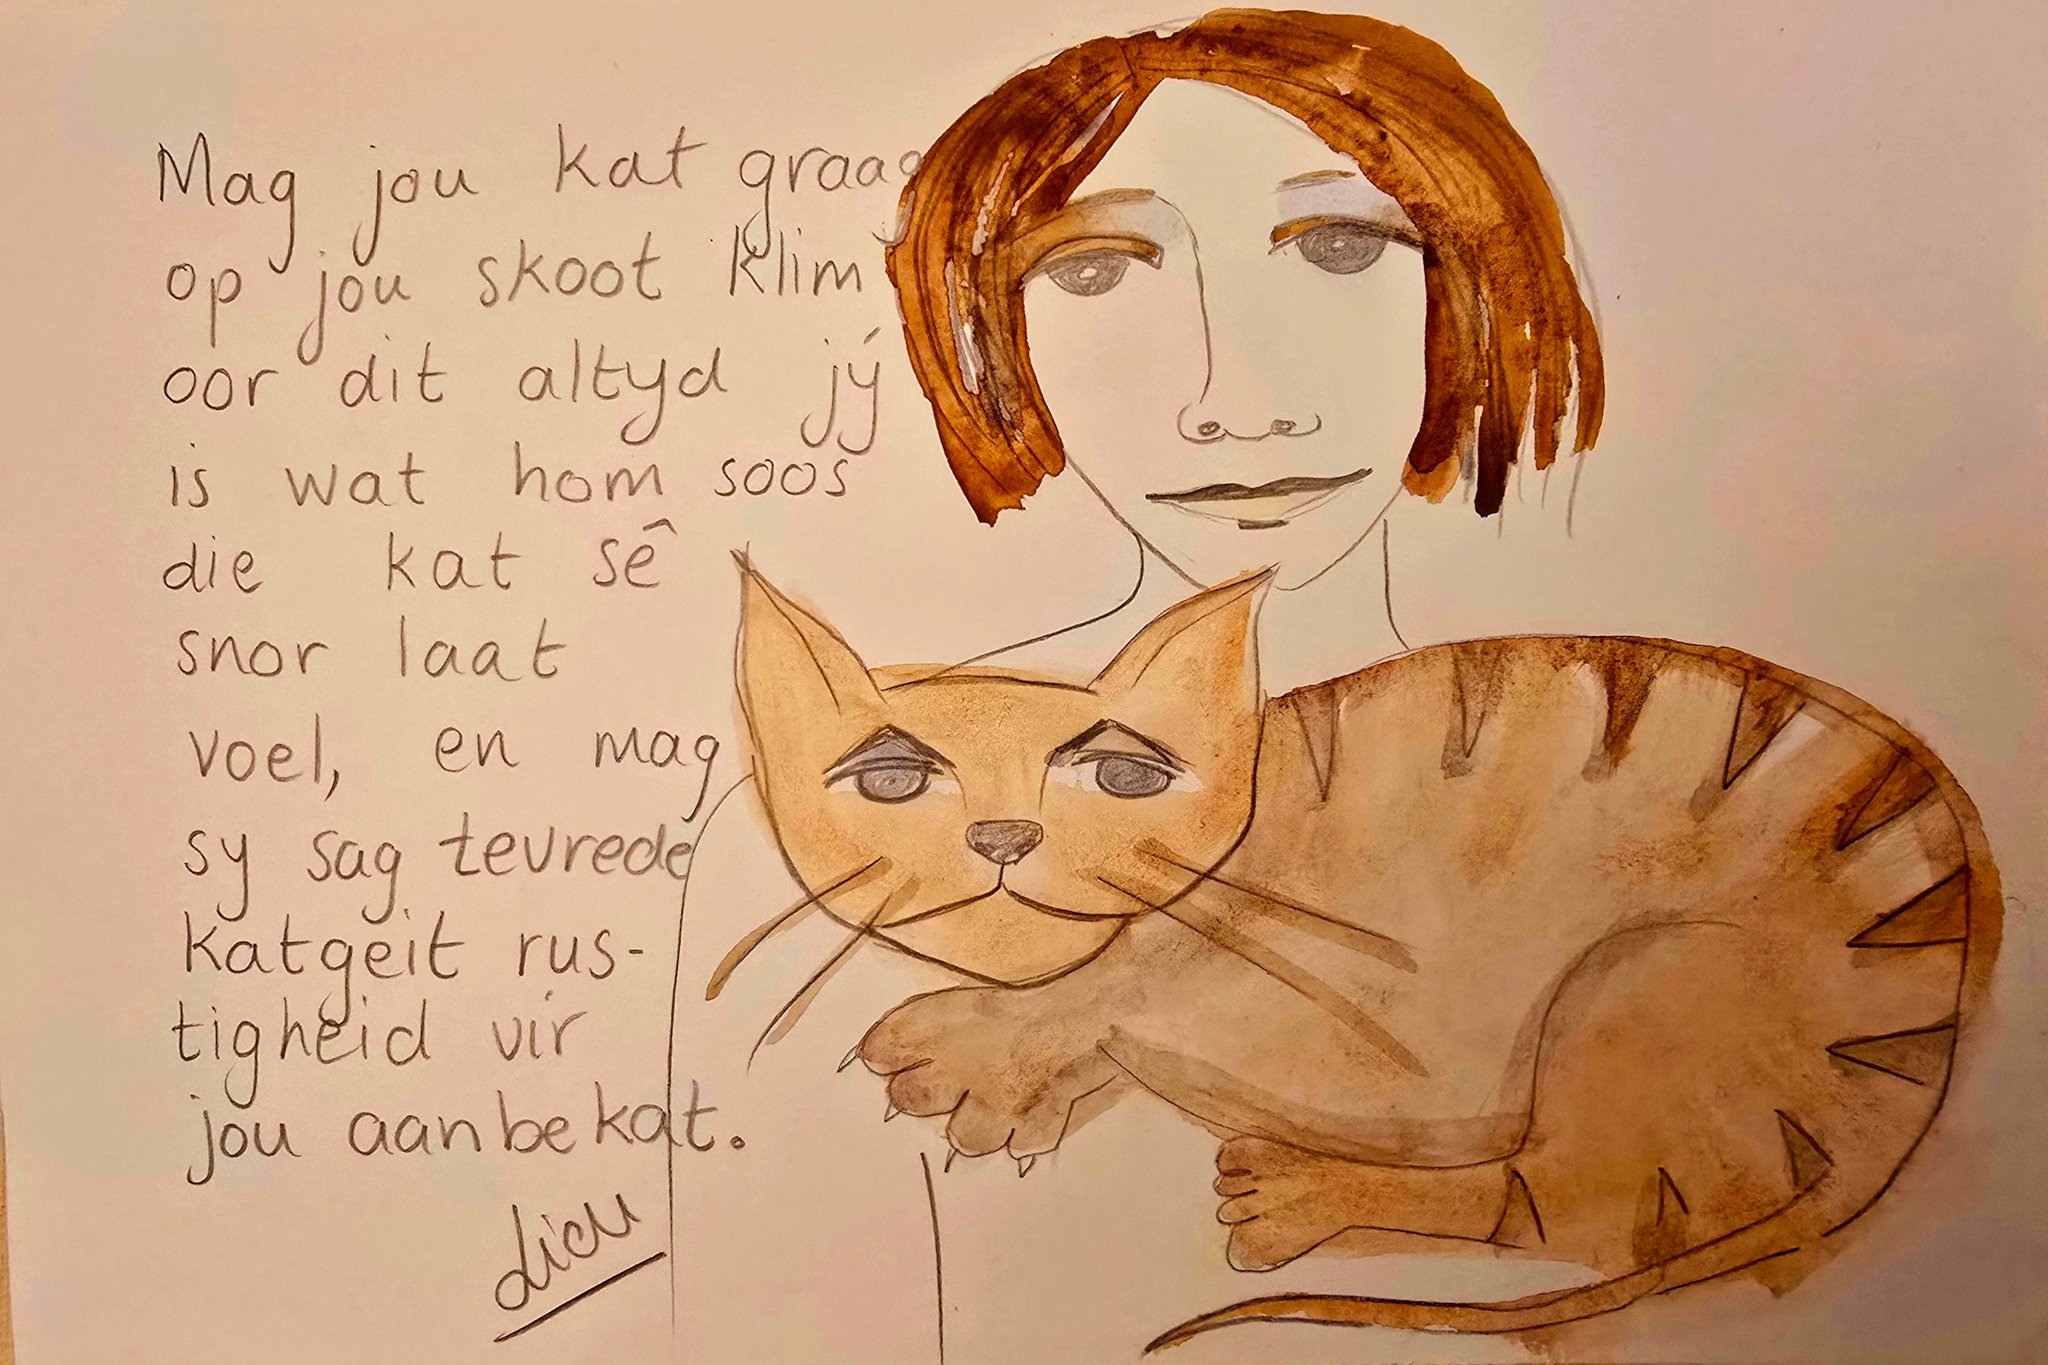 Mag jou kat graag
op jou skoot klim
oor dit altyd jý
is wat hom soos
die kat sê
snor laat
voel, en mag
sy sag tevrede
katgeit rus-
tigheid vir
jou aanbekat.